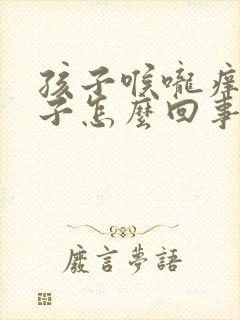 孩子喉嚨痒
子怎麼回事
廢言夢語